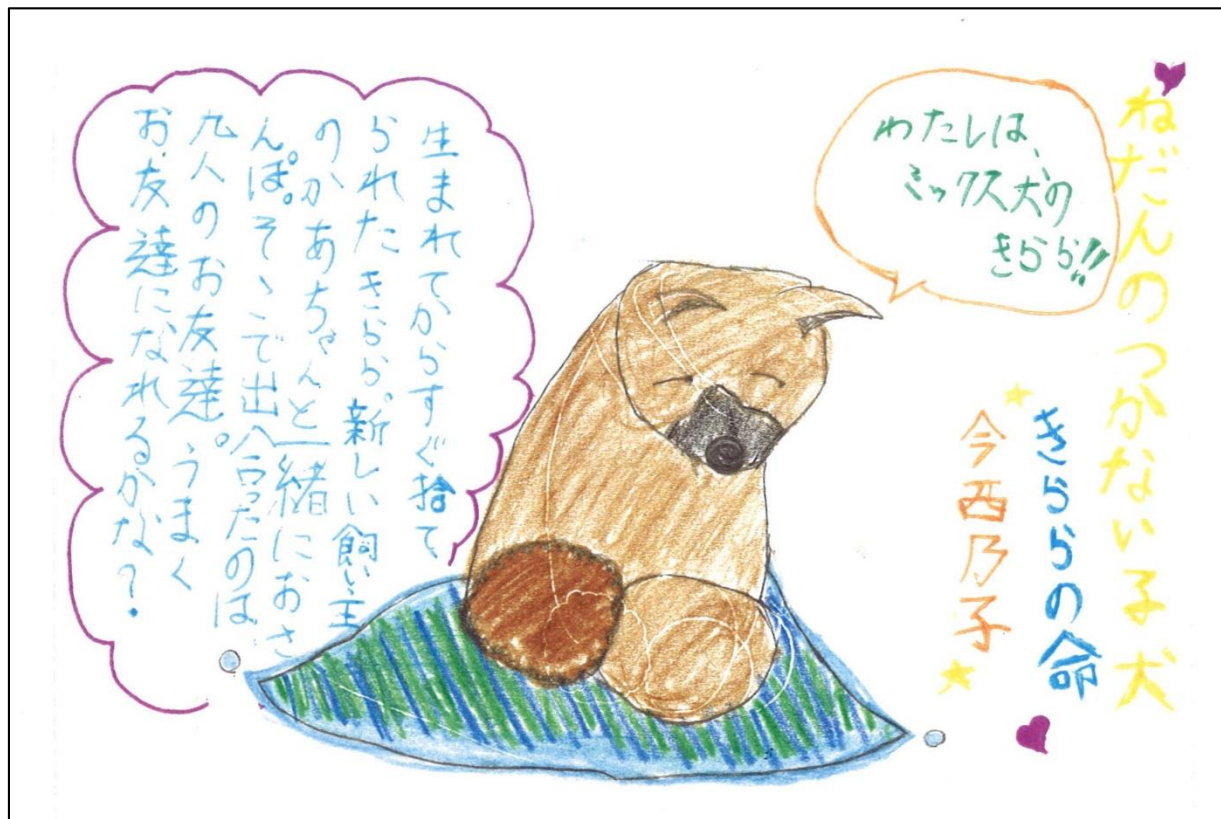 ねだんのつかない子犬
きららの命
今西乃子
わたしは、
ミックス犬の
きらら!!
生まれてからすぐ捨て
られたきらら。新しい飼い主
のかあちゃんと一緒におさ
んぽ。そこで出合ったのは
九人のお友達。うまく
お友達になれるかな？